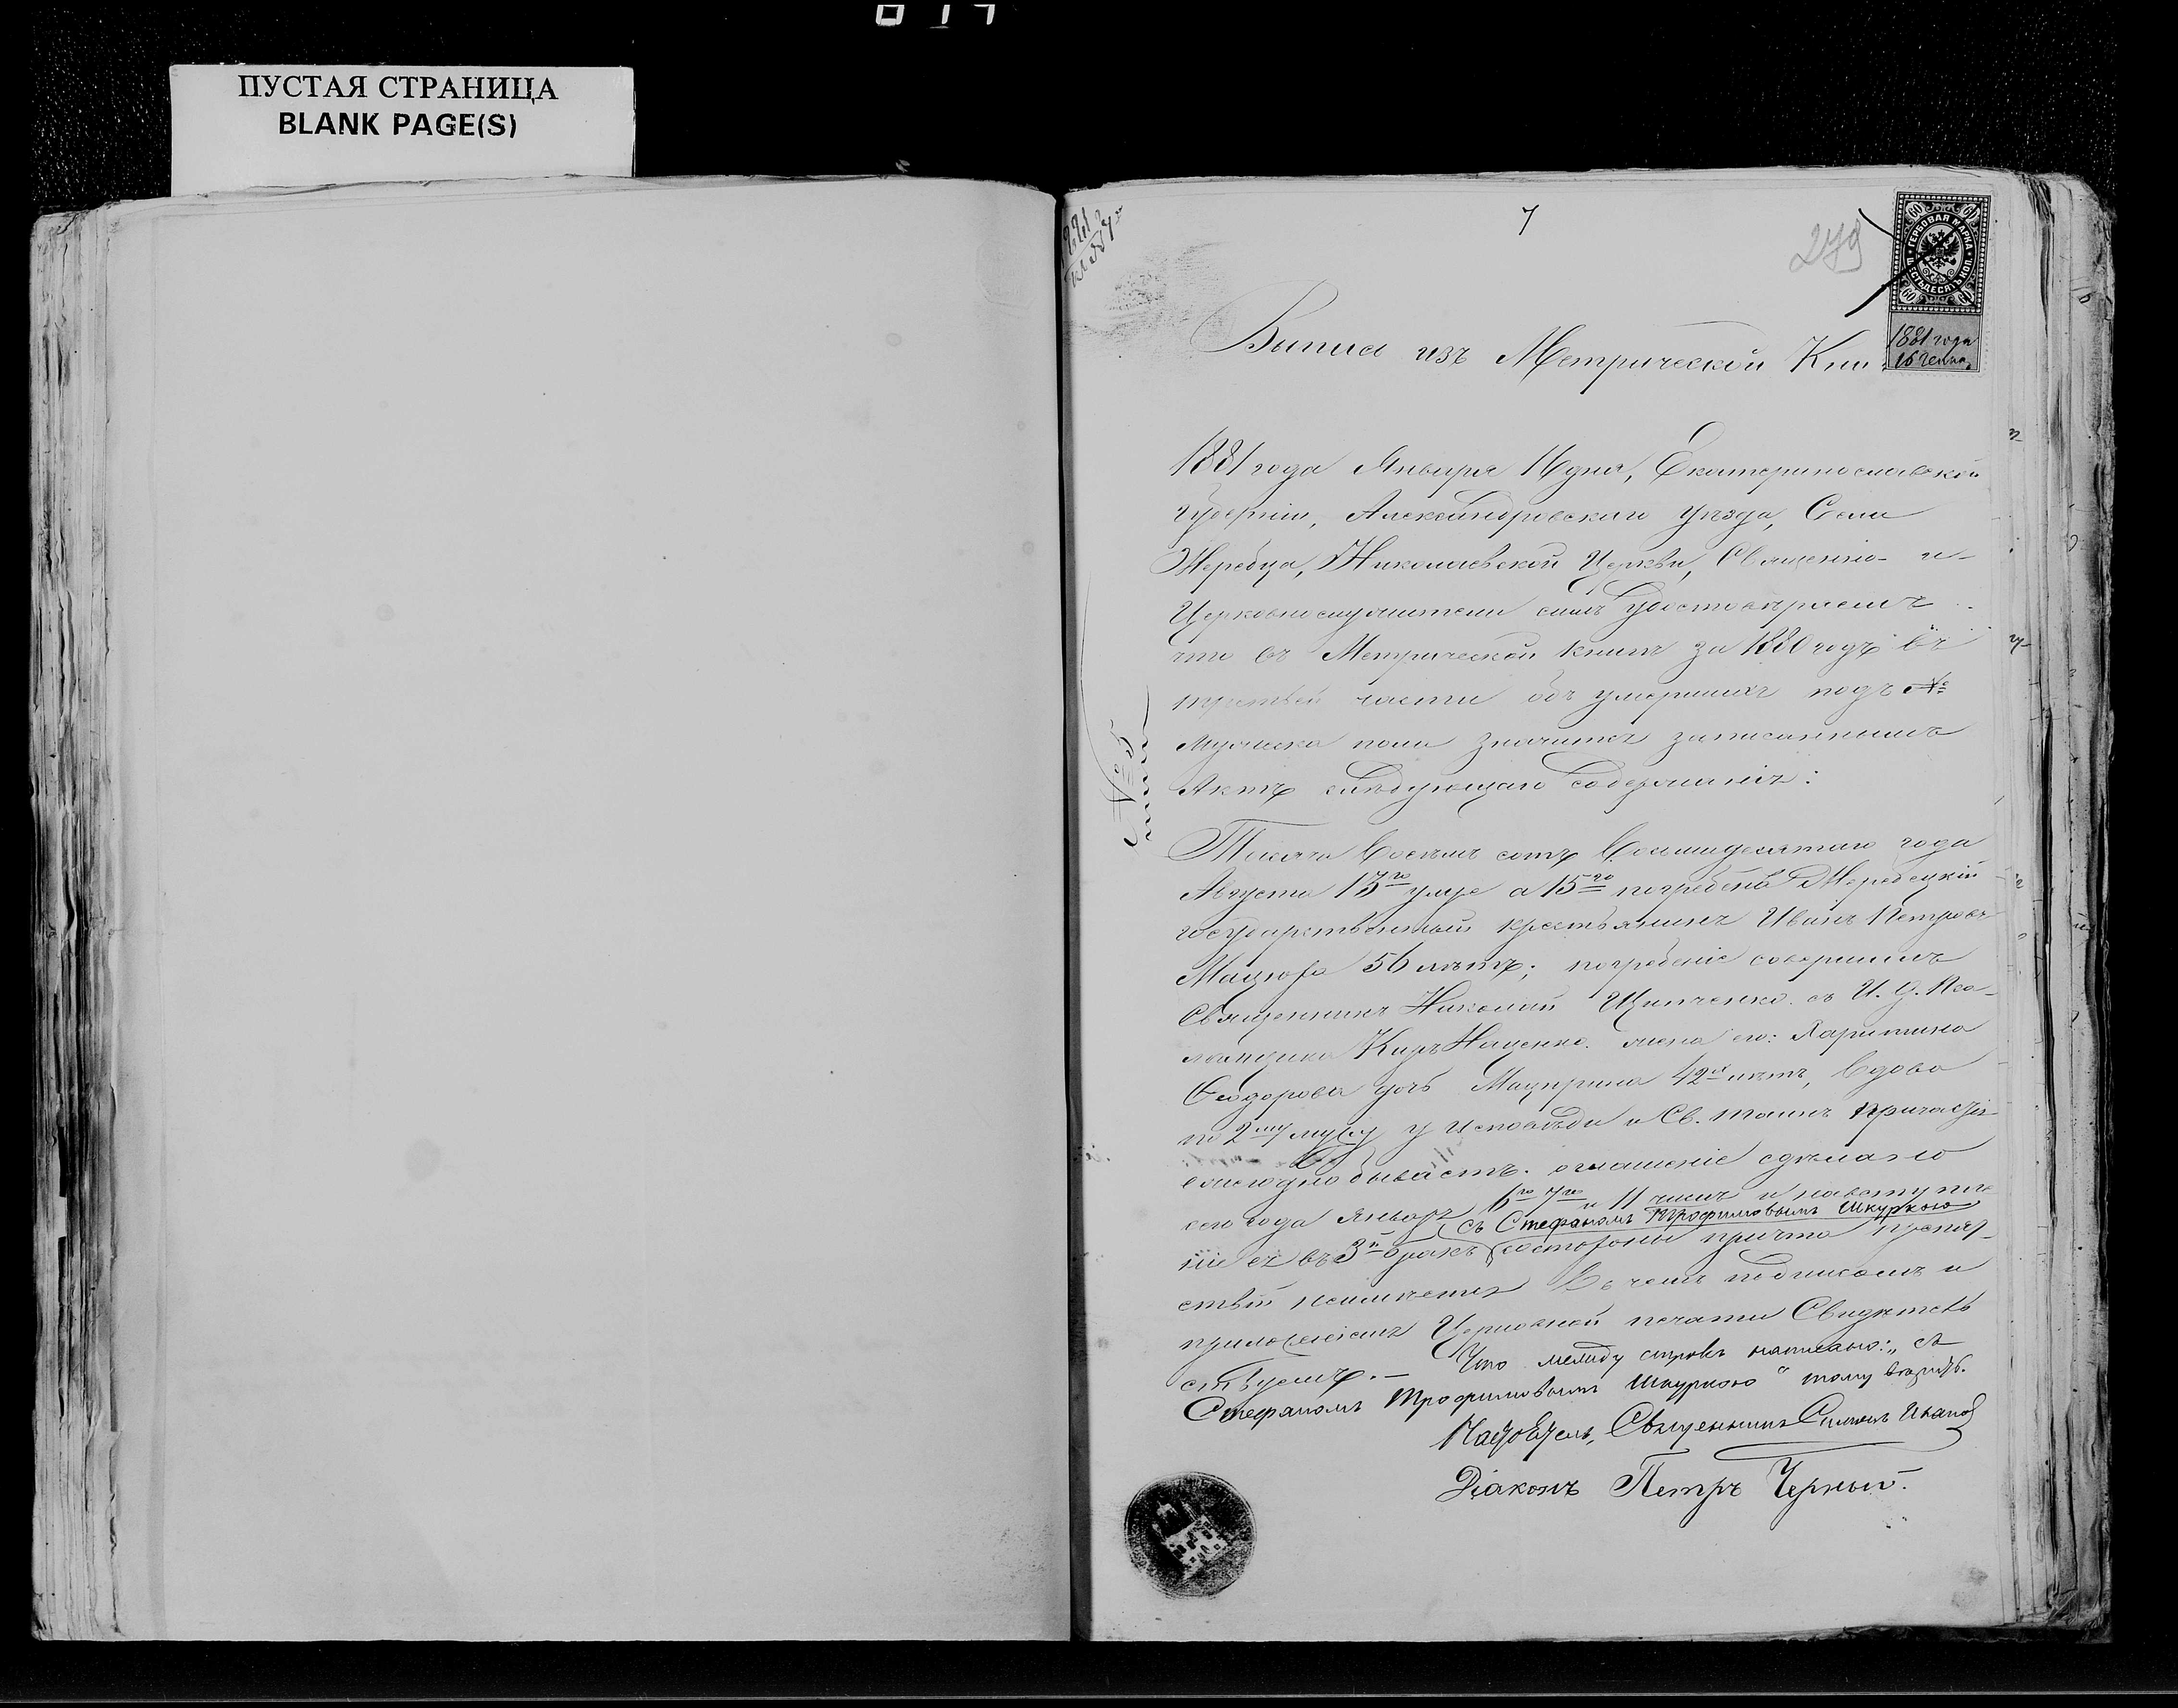 ПУСТАЯ СТРАНИЦА
BLANK PAGE(S)
7
279
ГЕРБОВАЯ МАРКА
ШЕСТЬДЕСЯТЪ КОП.
60 60
60 60
1881 года
16 Генва.
Выпись изъ Метрической Кни:
1881 года Января 16 дня, Екатеринославской
Губерніи, Александровскаго уѣзда, Села
Жеребца, Николаевской Церкви, Священно- и-
Церковнослужители симъ удостовѣряемъ
что въ Метрической книгѣ за 1880 годъ въ
третьей части объ умершихъ подъ №
мужеска пола значится записаннымъ
Актъ слѣдующаго содержанія:
Тысяча восемь сотъ восьмидесятаго года
Августа 13го умре а 15го погребенъ Жеребецкій
государственный крестьянинъ Иванъ Петровъ
Мацюра 56 лѣтъ; погребеніе совершилъ
Священникъ Николай с. И. д. Пса-
ломщика Наценко. жена его: Харитина
Феодорова дочь 42хъ лѣтъ, вдова
по 2му мужу у исповѣди и Св. таинъ Причастія
ежегодно бываетъ. оглашеніе сдѣлано
сего года Января 6го 7го и 11 числъ и на вступле
съ Стефаномъ Трофимовымъ Шкуркою
ніе ея въ 3й бракъ состороны причта препят-
ствій неимѣется Въ чемъ подписомъ и
приложеніемъ Церковной печати Свидѣтель
ствуемъ. — Что между строкъ написано: „съ
Стефаномъ Трофимовымъ Шкуркою“ тому вѣрить.
Священникъ Симеонъ Ивановъ
Діаконъ Петръ Черный.
№ 5